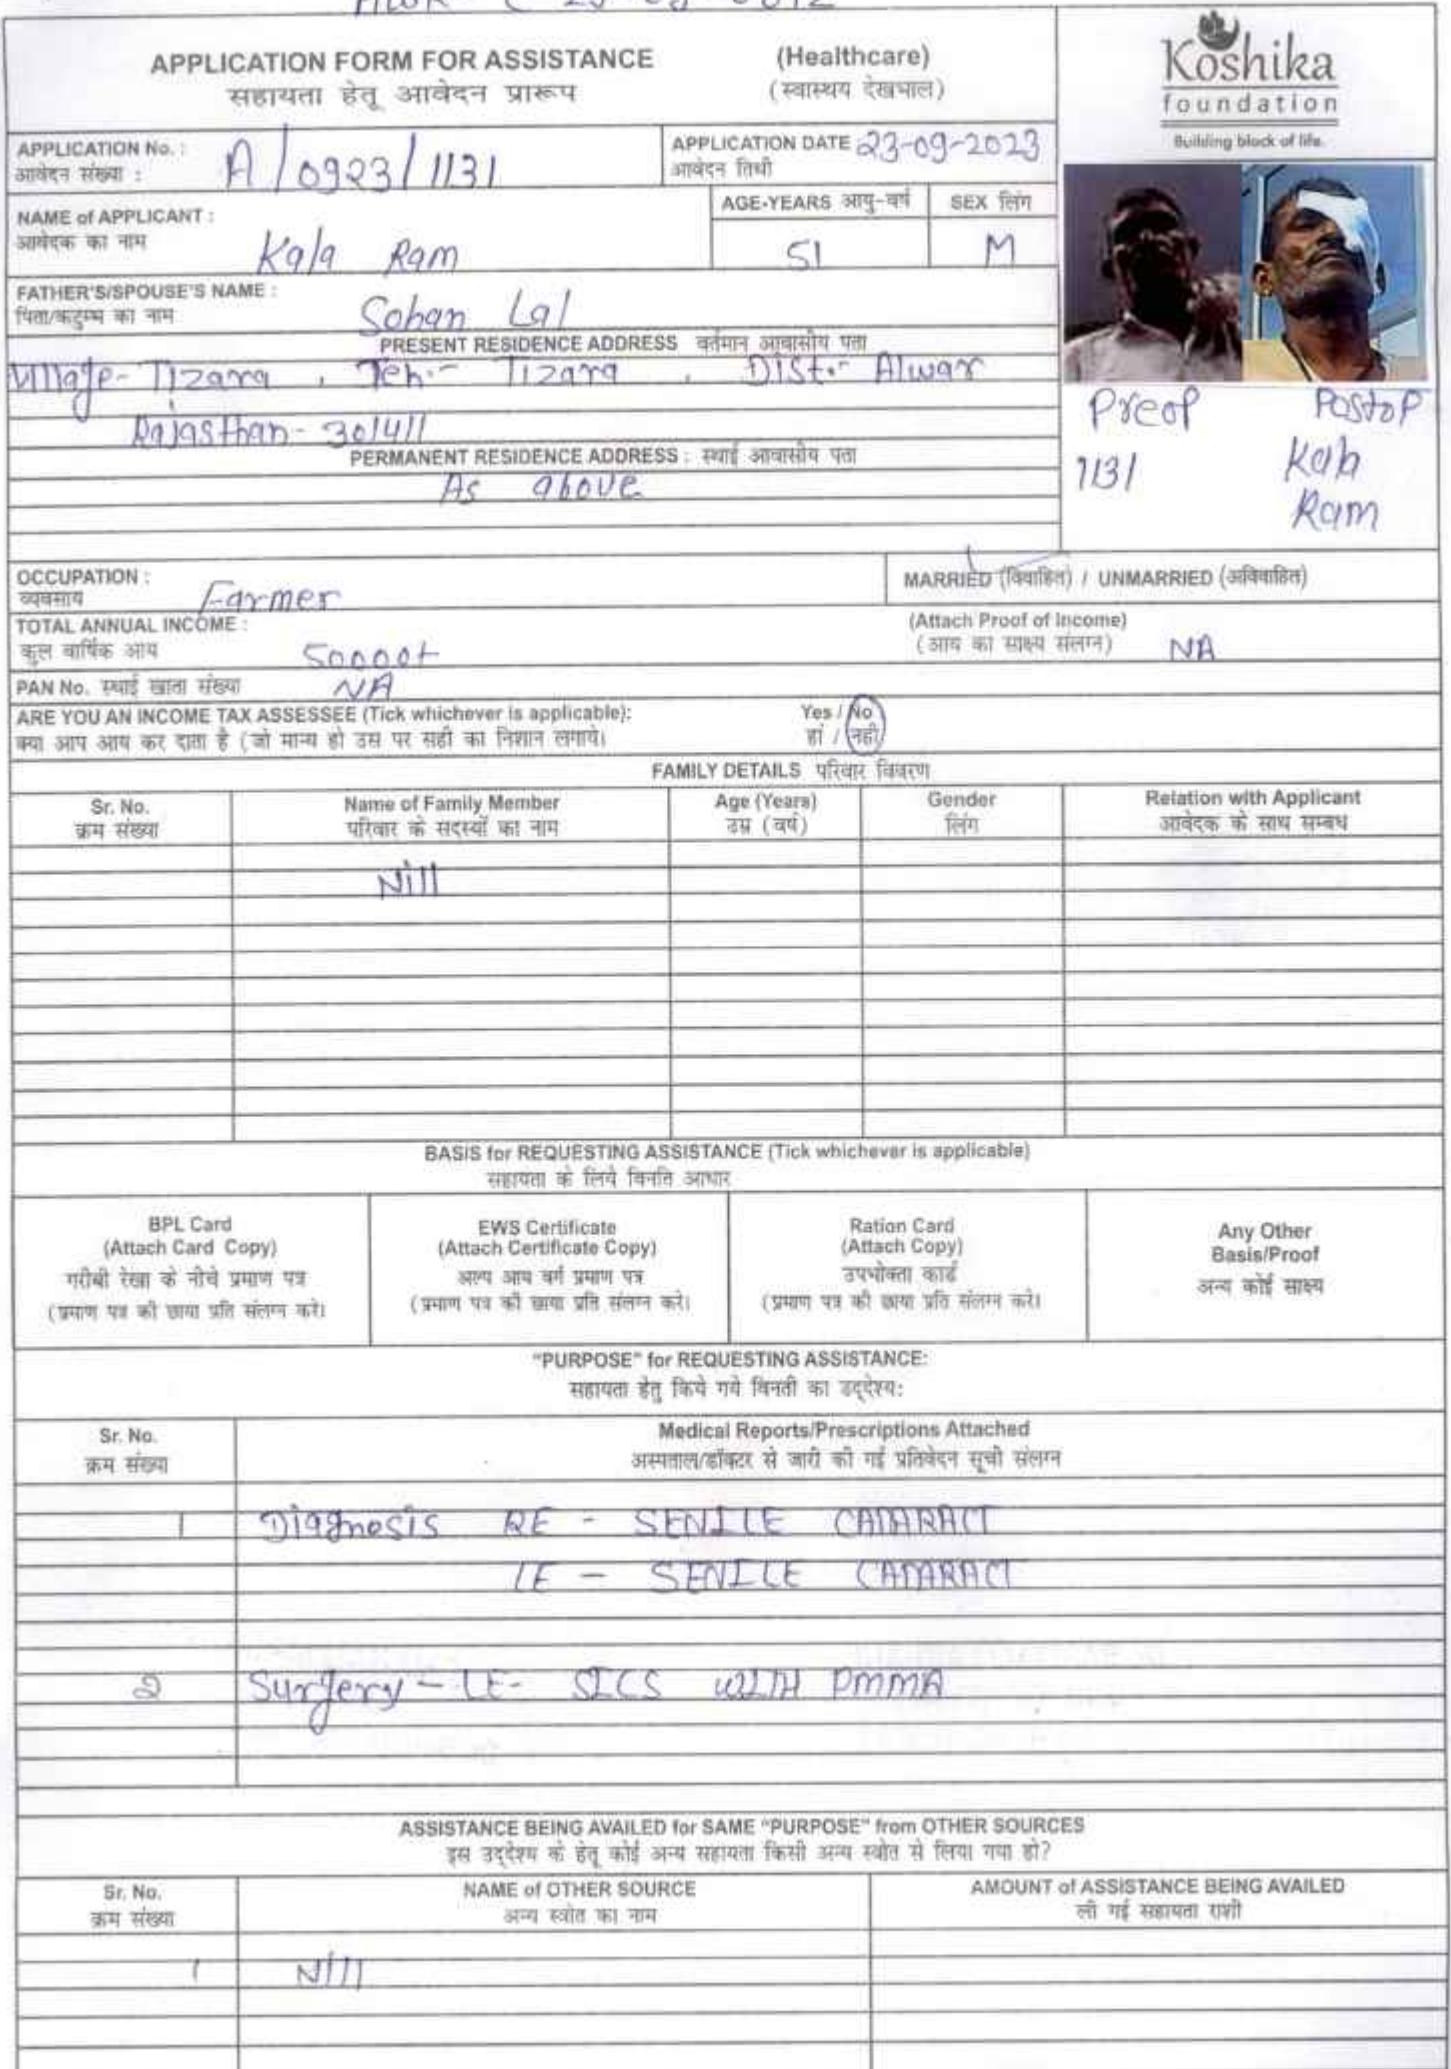 APPLICATION FORM FOR ASSISTANCE (Healthcare)
सहायता हेतू आवेदन प्रारूप (स्वास्थय देखभाल)
Koshika
foundation
Building block of life.
APPLICATION No. : A/0923/1131
आवेदन संख्या :
APPLICATION DATE 23-09-2023
आवेदन तिथी
NAME of APPLICANT :
आवेदक का नाम Kala Ram
AGE-YEARS आयु-वर्ष SEX लिंग
51 M
FATHER'S/SPOUSE'S NAME :
पिता/कटुम्ब का नाम Sohan Lal
PRESENT RESIDENCE ADDRESS वर्तमान आवासीय पता
Village- Tizara , Teh.- Tizara , Dist.- Alwar
Rajasthan- 301411
PERMANENT RESIDENCE ADDRESS : स्थाई आवासीय पता
As above
Preop Postop
1131 Kala
Ram
OCCUPATION :
व्यवसाय Farmer
MARRIED (विवाहित) / UNMARRIED (अविवाहित)
TOTAL ANNUAL INCOME :
कुल वार्षिक आय 50000t
(Attach Proof of Income)
(आय का साक्ष्य संलग्न) NA
PAN No. स्थाई खाता संख्या NA
ARE YOU AN INCOME TAX ASSESSEE (Tick whichever is applicable): Yes / No
क्या आप आय कर दाता है (जो मान्य हो उस पर सही का निशान लगाये। हां / नही
FAMILY DETAILS परिवार विवरण
Sr. No. Name of Family Member Age (Years) Gender Relation with Applicant
क्रम संख्या परिवार के सदस्यों का नाम उम्र (वर्ष) लिंग आवेदक के साथ सम्बध
Nill
BASIS for REQUESTING ASSISTANCE (Tick whichever is applicable)
सहायता के लिये विनति आधार
BPL Card
(Attach Card Copy)
गरीबी रेखा के नीचे प्रमाण पत्र
(प्रमाण पत्र की छाया प्रति संलग्न करे।
EWS Certificate
(Attach Certificate Copy)
अल्प आय वर्ग प्रमाण पत्र
(प्रमाण पत्र की छाया प्रति संलग्न करे।
Ration Card
(Attach Copy)
उपभोक्ता कार्ड
(प्रमाण पत्र की छाया प्रति संलग्न करे।
Any Other
Basis/Proof
अन्य कोई साक्ष्य
"PURPOSE" for REQUESTING ASSISTANCE:
सहायता हेतु किये गये विनती का उद्देश्य:
Sr. No. Medical Reports/Prescriptions Attached
क्रम संख्या अस्पताल/डॉक्टर से जारी की गई प्रतिवेदन सूची संलग्न
1 Diagnosis RE - SENILE CATARACT
LE - SENILE CATARACT
2 Surgery - LE- SICS WITH PMMA
ASSISTANCE BEING AVAILED for SAME "PURPOSE" from OTHER SOURCES
इस उद्देश्य के हेतू कोई अन्य सहायता किसी अन्य स्त्रोत से लिया गया हो?
Sr. No. NAME of OTHER SOURCE AMOUNT of ASSISTANCE BEING AVAILED
क्रम संख्या अन्य स्त्रोत का नाम ली गई सहायता राशी
1 Nill